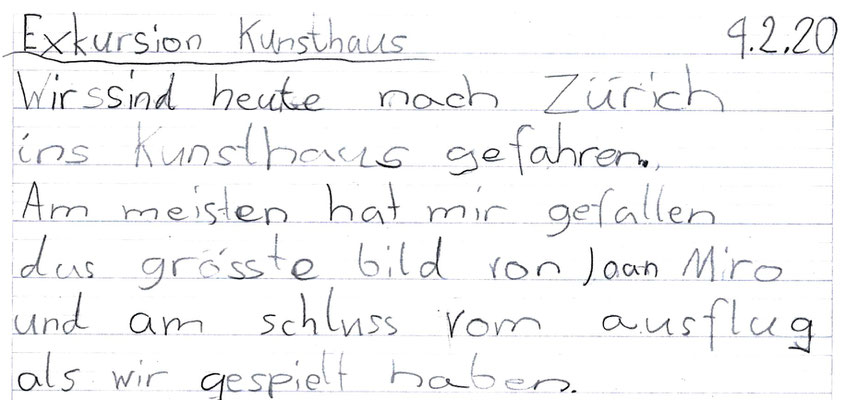 Exkursion Kunsthaus 4.2.20
Wirssind heute nach Zürich
ins Kunsthaus gefahren.
Am meisten hat mir gefallen
das grösste bild von Joan Miro
und am schluss vom ausflug
als wir gespielt haben.